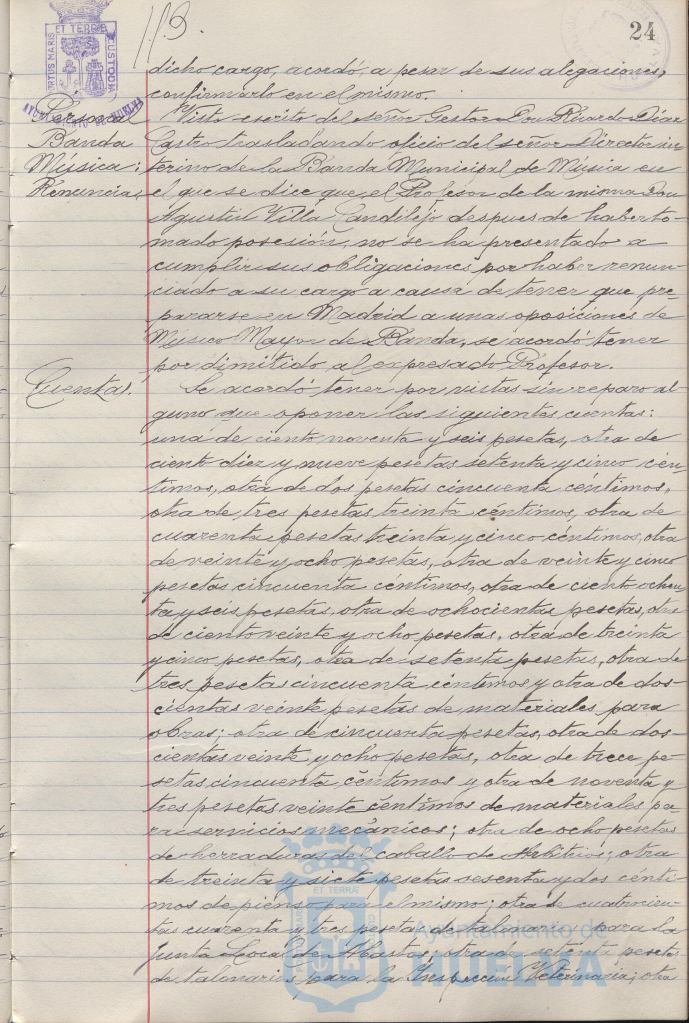 113.
24
PORTUS MARIS ET TERRAE CUSTODIA
AYUNTAMIENTO DE HUELVA
dicho cargo, acordó, a pesar de sus alegaciones,
confirmarlo en el mismo.
Personal
Banda
Música:
Renuncia.
Visto escrito del señor Gestor Don Ricardo Díaz
Castro trasladando oficio del señor Director in-
terino de la Banda Municipal de Música en
el que se dice que el Profesor de la misma Don
Agustín Villa Candilejo despues de haber to-
mado posesión, no se ha presentado a
cumplir sus obligaciones por haber renun-
ciado a su cargo a causa de tener que pre-
pararse en Madrid a unas oposiciones de
Músico Mayor de Banda, se acordó tener
por dimitido al expresado Profesor.
Cuentas.
Se acordó tener por vistas sin reparo al-
guno que oponer las siguientes cuentas:
una de ciento noventa y seis pesetas, otra de
ciento diez y nueve pesetas setenta y cinco cén-
timos, otra de dos pesetas cincuenta céntimos,
otra de tres pesetas treinta céntimos, otra de
cuarenta pesetas treinta y cinco céntimos, otra
de veinte y ocho pesetas, otra de veinte y cinco
pesetas cincuenta céntimos, otra de ciento ochen-
ta y seis pesetas, otra de ochocientas pesetas, otra
de ciento veinte y ocho pesetas, otra de treinta
y cinco pesetas, otra de setenta pesetas, otra de
tres pesetas cincuenta céntimos y otra de dos-
cientas veinte pesetas de materiales para
obras; otra de cincuenta pesetas, otra de dos-
cientas veinte y ocho pesetas, otra de trece pe-
setas cincuenta céntimos y otra de noventa y
tres pesetas veinte céntimos de materiales pa-
ra servicios mecánicos; otra de ocho pesetas
de herraduras del caballo de Arbitrios; otra
de treinta y siete pesetas sesenta y dos cénti-
mos de pienso para el mismo; otra de cuatrocien-
tas cuarenta y tres pesetas de talonarios para la
Junta Local de Abastos; otra de setenta pesetas
de talonarios para la Inspección Veterinaria; otra
Ayuntamiento de
HUELVA